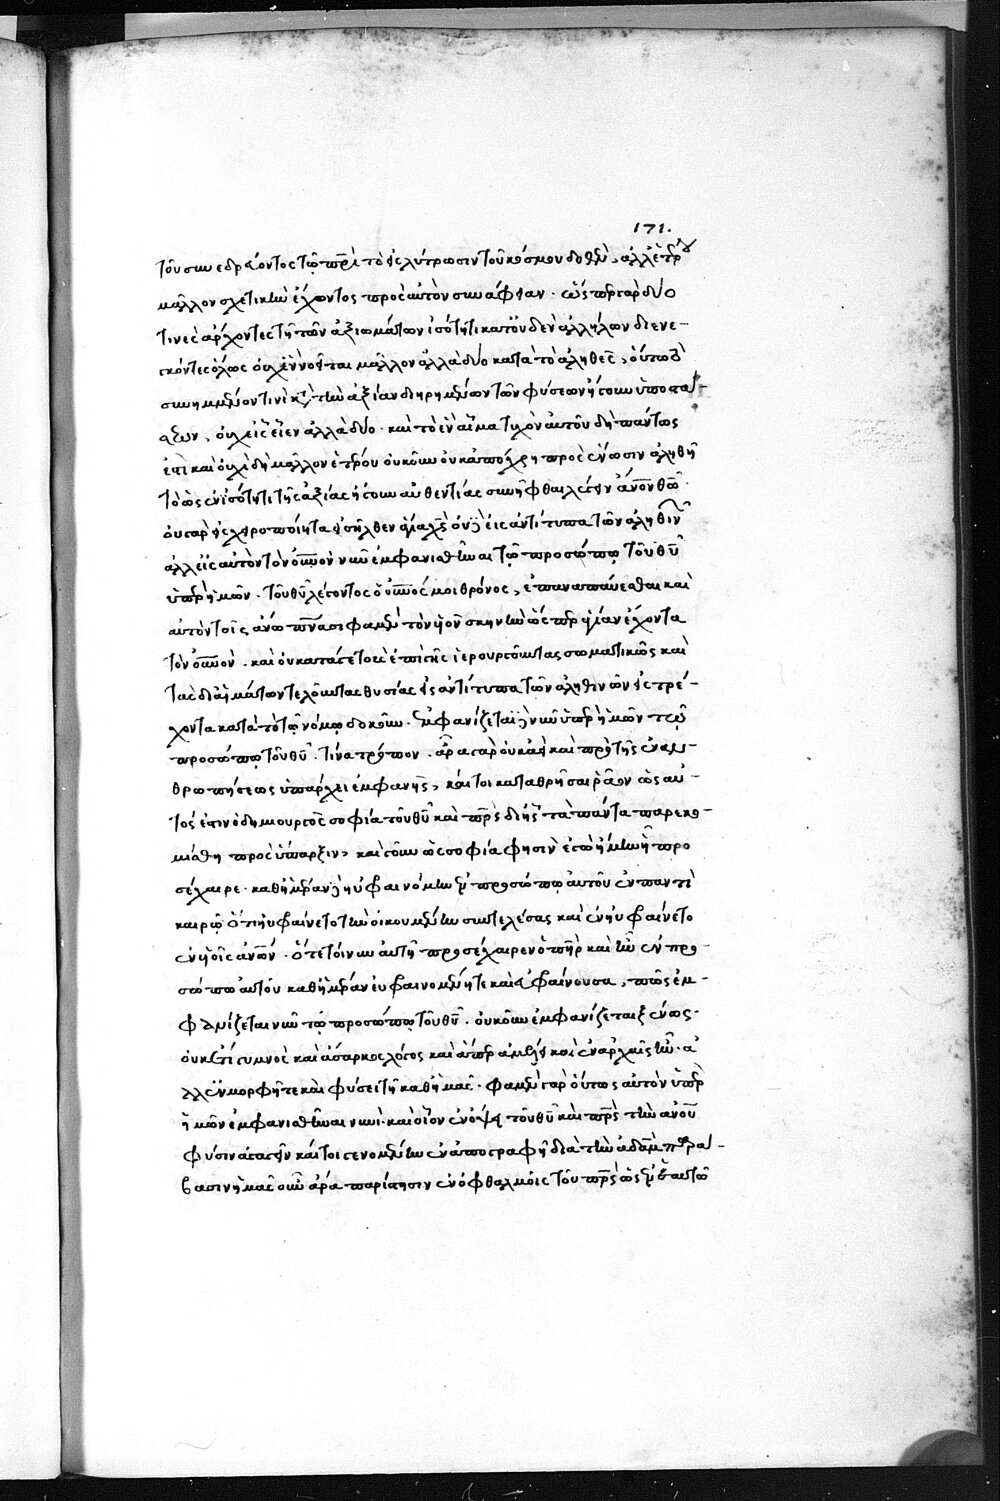 171.
τοῦ συνεδρεύοντος τῷ πρὶ τὸ εἰς λύτρωσιν τοῦ κόσμου δοθὲν, ἀλλ' ἑτέρου
μᾶλλον σχετικὴν ἔχοντος πρὸς αὐτὸν συνάφειαν. ὥσπερ γὰρ δύο
τινὲς ἄρχοντες τῇ τῶν ἀξιωμάτων ἰσότητι κατ' οὐδὲν ἀλλήλων διενε-
γκόντες ὅλως οὐχ ἓν νοεῖται μᾶλλον ἀλλὰ δύο κατὰ τὸ ἀληθὲς, οὕτω
συνημμένον τινὶ κατὰ τὴν ἀξίαν διῃρημένων τῶν φύσεων ἤγουν ὑποστά-
σεων, οὐχ εἷς εἶεν ἀλλὰ δύο. καὶ τὸ ἓν αἷμα τυχὸν αὐτοῦ δὴ πάντως
ἐστὶ καὶ οὐχὶ δὴ μᾶλλον ἑτέρου οὐκοῦν οὐκ ἀπόχρη πρὸς ἕνωσιν ἀληθῆ
τὸ ὡς ἐν ἰσότητι τῆς ἀξίας ἤγουν αὐθεντίας συνῆφθαι λέγειν ἄνον θῷ.
οὐ γὰρ εἰς χειροποίητα εἰσῆλθεν ἅγια χς οὐδὲ εἰς ἀντίτυπα τῶν ἀληθινῶν
ἀλλ' εἰς αὐτὸν τὸν οὐνον νῦν ἐμφανισθῆναι τῷ προσώπῳ τοῦ θυ
ὑπὲρ ἡμῶν. τοῦ θυ λέγοντος ὁ οὐνός μοι θρόνος, ἐπαναπαύεσθαι καὶ
αὐτὸν τοῖς ἄνω πνασι φαμὲν τὸν υἱὸν σκηνὴν ὥσπερ ἁγίαν ἔχοντα
τὸν οὐνον. καὶ οὐ κατά γε τοὺς ἐπὶ γῆς ἱερουργοῦντας σωματικῶς καὶ
τὰς δι' αἱμάτων τελοῦντας θυσίας εἰς ἀντίτυπα τῶν ἀληθινῶν εἰστρέ-
χοντα κατὰ τὸ τῷ νόμῳ δοκοῦν. ἐμφανίζεται δὲ νῦν ὑπὲρ ἡμῶν τῷ
προσώπῳ τοῦ θυ. τίνα τρόπον. ἆρα γὰρ οὐκ ἀεὶ καὶ πρὸ τῆς ἐναν-
θρωπήσεως ὑπάρχει ἐμφανὴς, καίτοι καταθρῆσαι ῥᾷον ὡς αὐ-
τός ἐστιν ὁ δημιουργὸς σοφία τοῦ θυ καὶ πρς δι' ἧς τὰ πάντα παρεκο-
μίσθη πρὸς ὕπαρξιν, καὶ γοῦν ὡς σοφία φησὶν ἐγὼ ἤμην ᾗ προ-
σέχαιρε. καθ' ἡμέραν δὲ ηὐφραινόμην ἐν προσώπῳ αὐτοῦ ἐν παντὶ
καιρῷ ὅτι ηὐφραίνετο τὴν οἰκουμένην συντελέσας καὶ ἐνηυφραίνετο
ἐν υἱοῖς ἀνων. ὅτε τοίνυν αὐτῇ προσέχαιρεν ὁ πηρ καὶ ἦν ἐν προ-
σώπῳ αὐτοῦ καθ' ἡμέραν εὐφραινομένη τε καὶ εὐφραίνουσα, πῶς ἐμ-
φανίζεται νῦν τῷ προσώπῳ τοῦ θυ. οὐκοῦν ἐμφανίζεται ξένως.
οὐκέτι γυμνὸς καὶ ἄσαρκος λόγος καθάπερ ἀμέλει καὶ ἐν ἀρχαῖς ἦν. ἀ-
λλ' ἐν μορφῇ τε καὶ φύσει τῇ καθ' ἡμᾶς. φαμὲν γὰρ οὕτως αὐτὸν ὑπὲρ
ἡμῶν ἐμφανισθῆναι νυνὶ. καὶ οἷον ἐν ὄψει τοῦ θυ καὶ πρς τὴν ἀνου
φύσιν ἀγαγεῖν καίτοι γενομένην ἐν ἀποστροφῇ διὰ τὴν ἐν ἀδὰμ παρά-
βασιν ἡμᾶς οὖν ἄρα παρίστησιν ἐν ὀφθαλμοῖς τοῦ πρς ὡς ἐν ἑαυτῷ